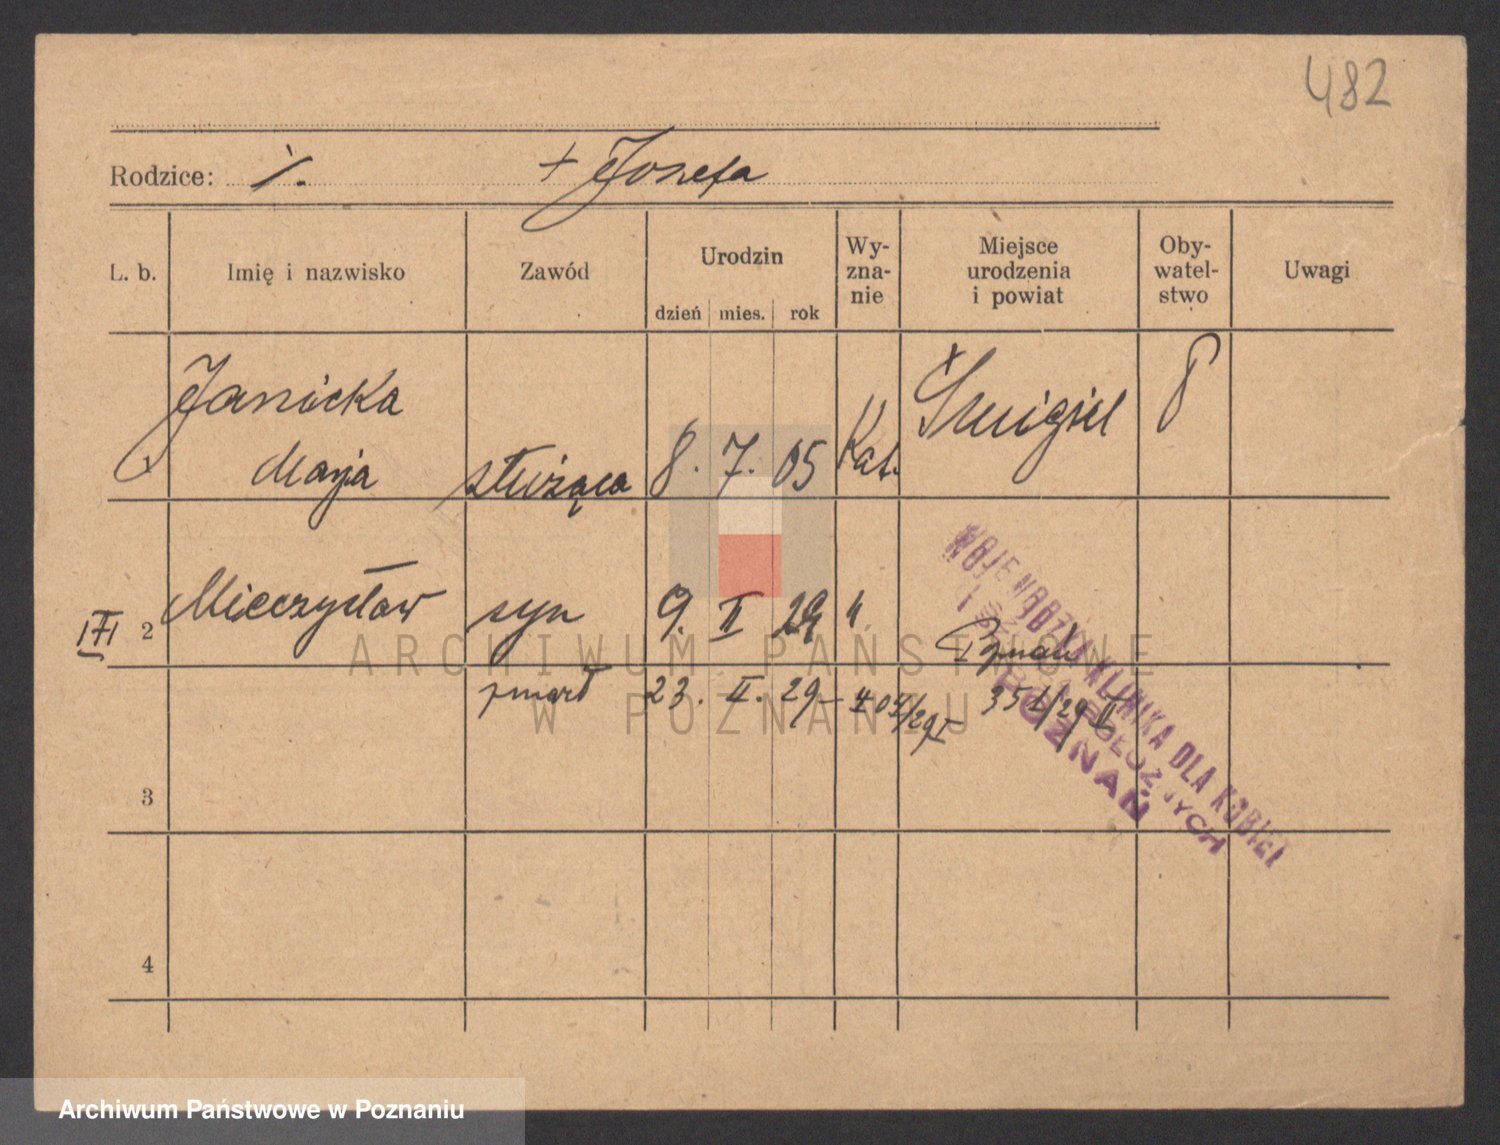 482
Rodzice: ⁒ + Josefa
L. b. Imię i nazwisko Zawód Urodzin dzień mies. rok Wy-zna-nie Miejsce urodzenia i powiat Oby-watel-stwo Uwagi
Janicka
Marja służąca 8. 7. 05 Kat. Śmigiel
III 2 Mieczysław syn 9. II 29
Poznań
zmarł 23. II. 29 351/29 II
3
4
WOJEWÓDZKA KLINIKA DLA KOBIET
POZNAŃ
ARCHIWUM PAŃSTWOWE
W POZNANIU
Archiwum Państwowe w Poznaniu